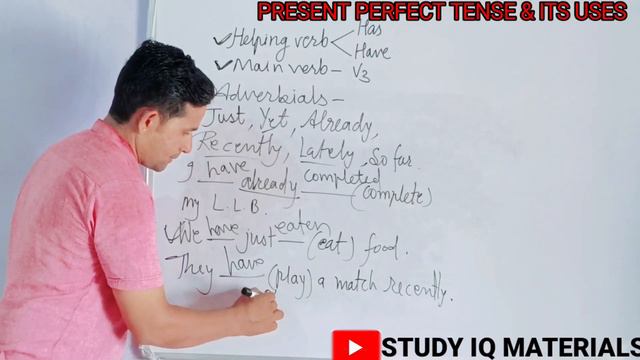 PRESENT PERFECT TENSE & ITS USES
✓Helping verb < Has
Have
✓Main verb – V3
Adverbials –
Just, Yet, Already,
Recently, Lately, So far.
I have already completed (complete)
my L.L.B.
✓We have just eaten (eat) food.
They have (play) a match recently.
STUDY IQ MATERIALS